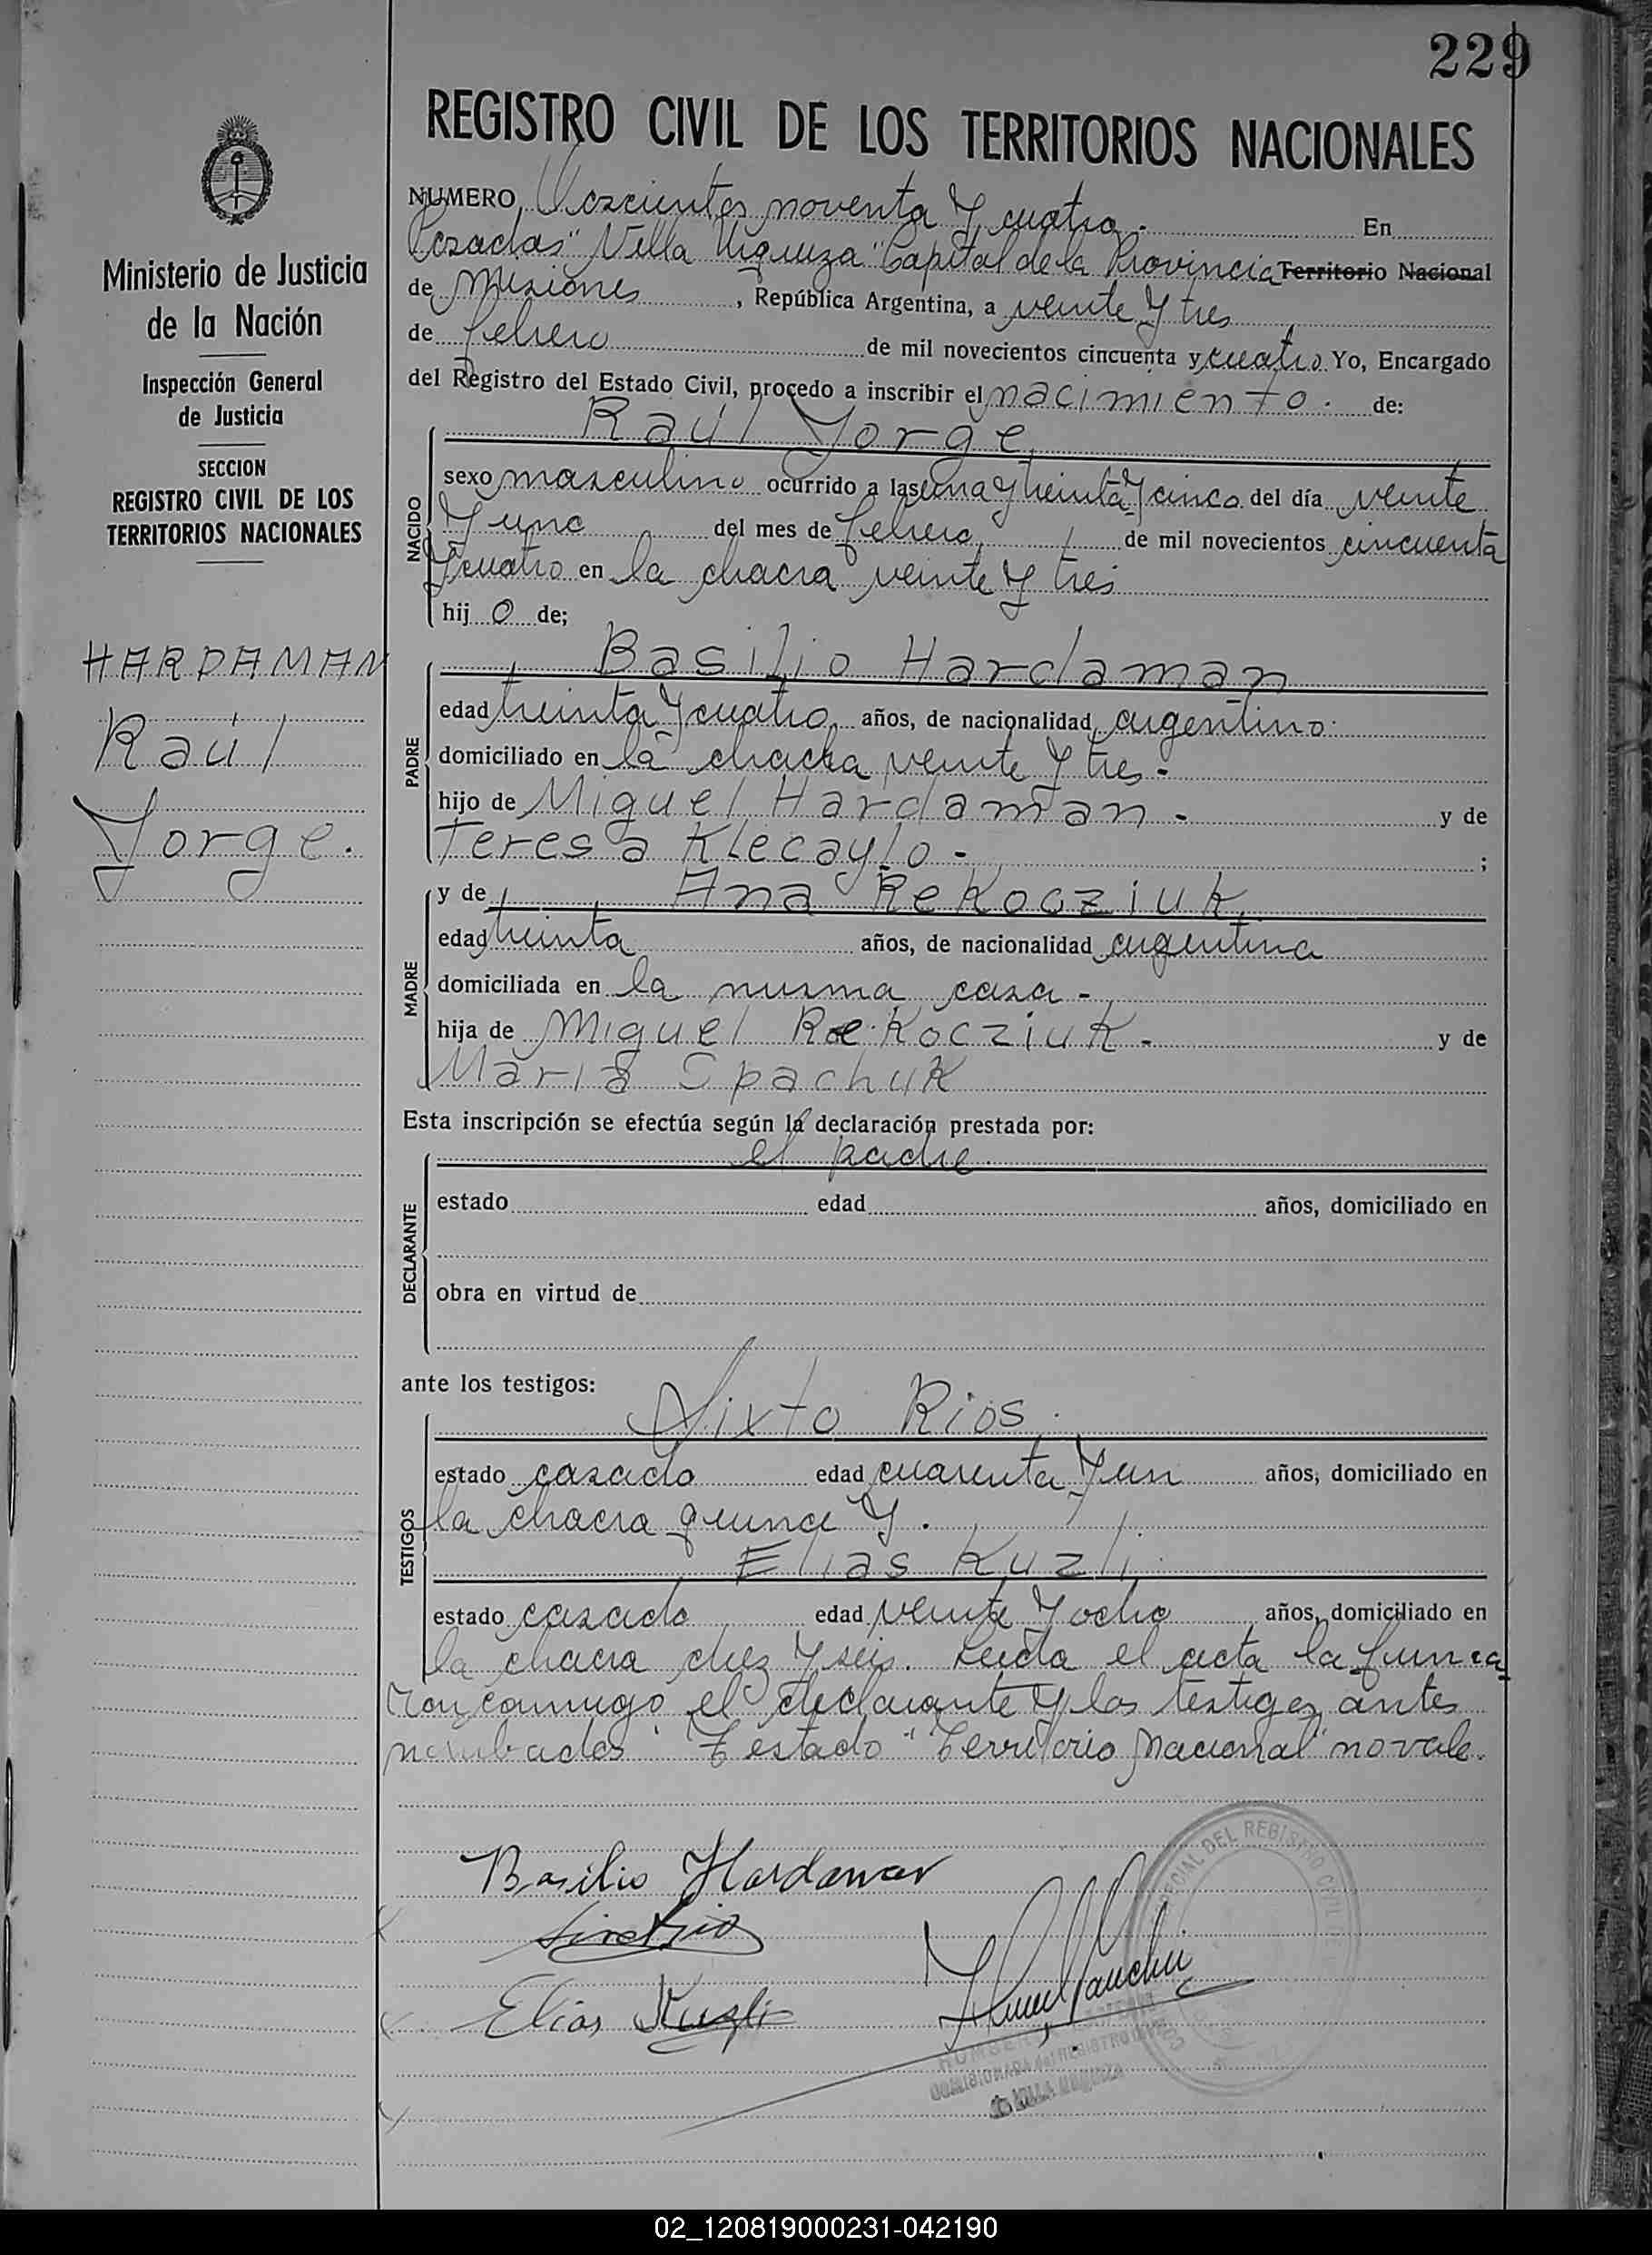 229
REGISTRO CIVIL DE LOS TERRITORIOS NACIONALES
Ministerio de Justicia
de la Nación
Inspección General
de Justicia
SECCION
REGISTRO CIVIL DE LOS
TERRITORIOS NACIONALES
HARDAMAN
Raúl
Jorge.
NUMERO Doscientos noventa y cuatro.- En
Posadas "Villa Urquiza" Capital de la Provincia Territorio Nacional
de Misiones, República Argentina, a veinte y tres
de febrero de mil novecientos cincuenta y cuatro. Yo, Encargado
del Registro del Estado Civil, procedo a inscribir el nacimiento. de:
Raúl Jorge
NACIDO
sexo masculino ocurrido a las una y treinta y cinco del día veinte
y uno del mes de febrero de mil novecientos cincuenta
y cuatro en la chacra veinte y tres
hij o de;
Basilio Hardaman
PADRE
edad treinta y cuatro años, de nacionalidad argentino.
domiciliado en la chacra veinte y tres -
hijo de Miguel Hardaman - y de
Teresa Klecaylo - ;
y de Ana Rekocziuk
MADRE
edad treinta años, de nacionalidad argentina
domiciliada en la misma casa -
hija de Miguel Rekocziuk - y de
Maria Spachuk
Esta inscripción se efectúa según la declaración prestada por:
el padre
DECLARANTE
estado edad años, domiciliado en
obra en virtud de
ante los testigos:
Sixto Rios.
TESTIGOS
estado casado edad cuarenta y un años, domiciliado en
la chacra quince y.
Elias Kuzli.
estado casado edad veinte y ocho años, domiciliado en
la chacra diez y seis. Leida el acta la firma
ron conmigo el declarante y los testigos antes
nombrados Testado "Territorio Nacional" no vale.
Basilio Hardaman
Elias Kuzli
DEL REGISTRO CIVIL
VILLA URQUIZA
02_120819000231-042190